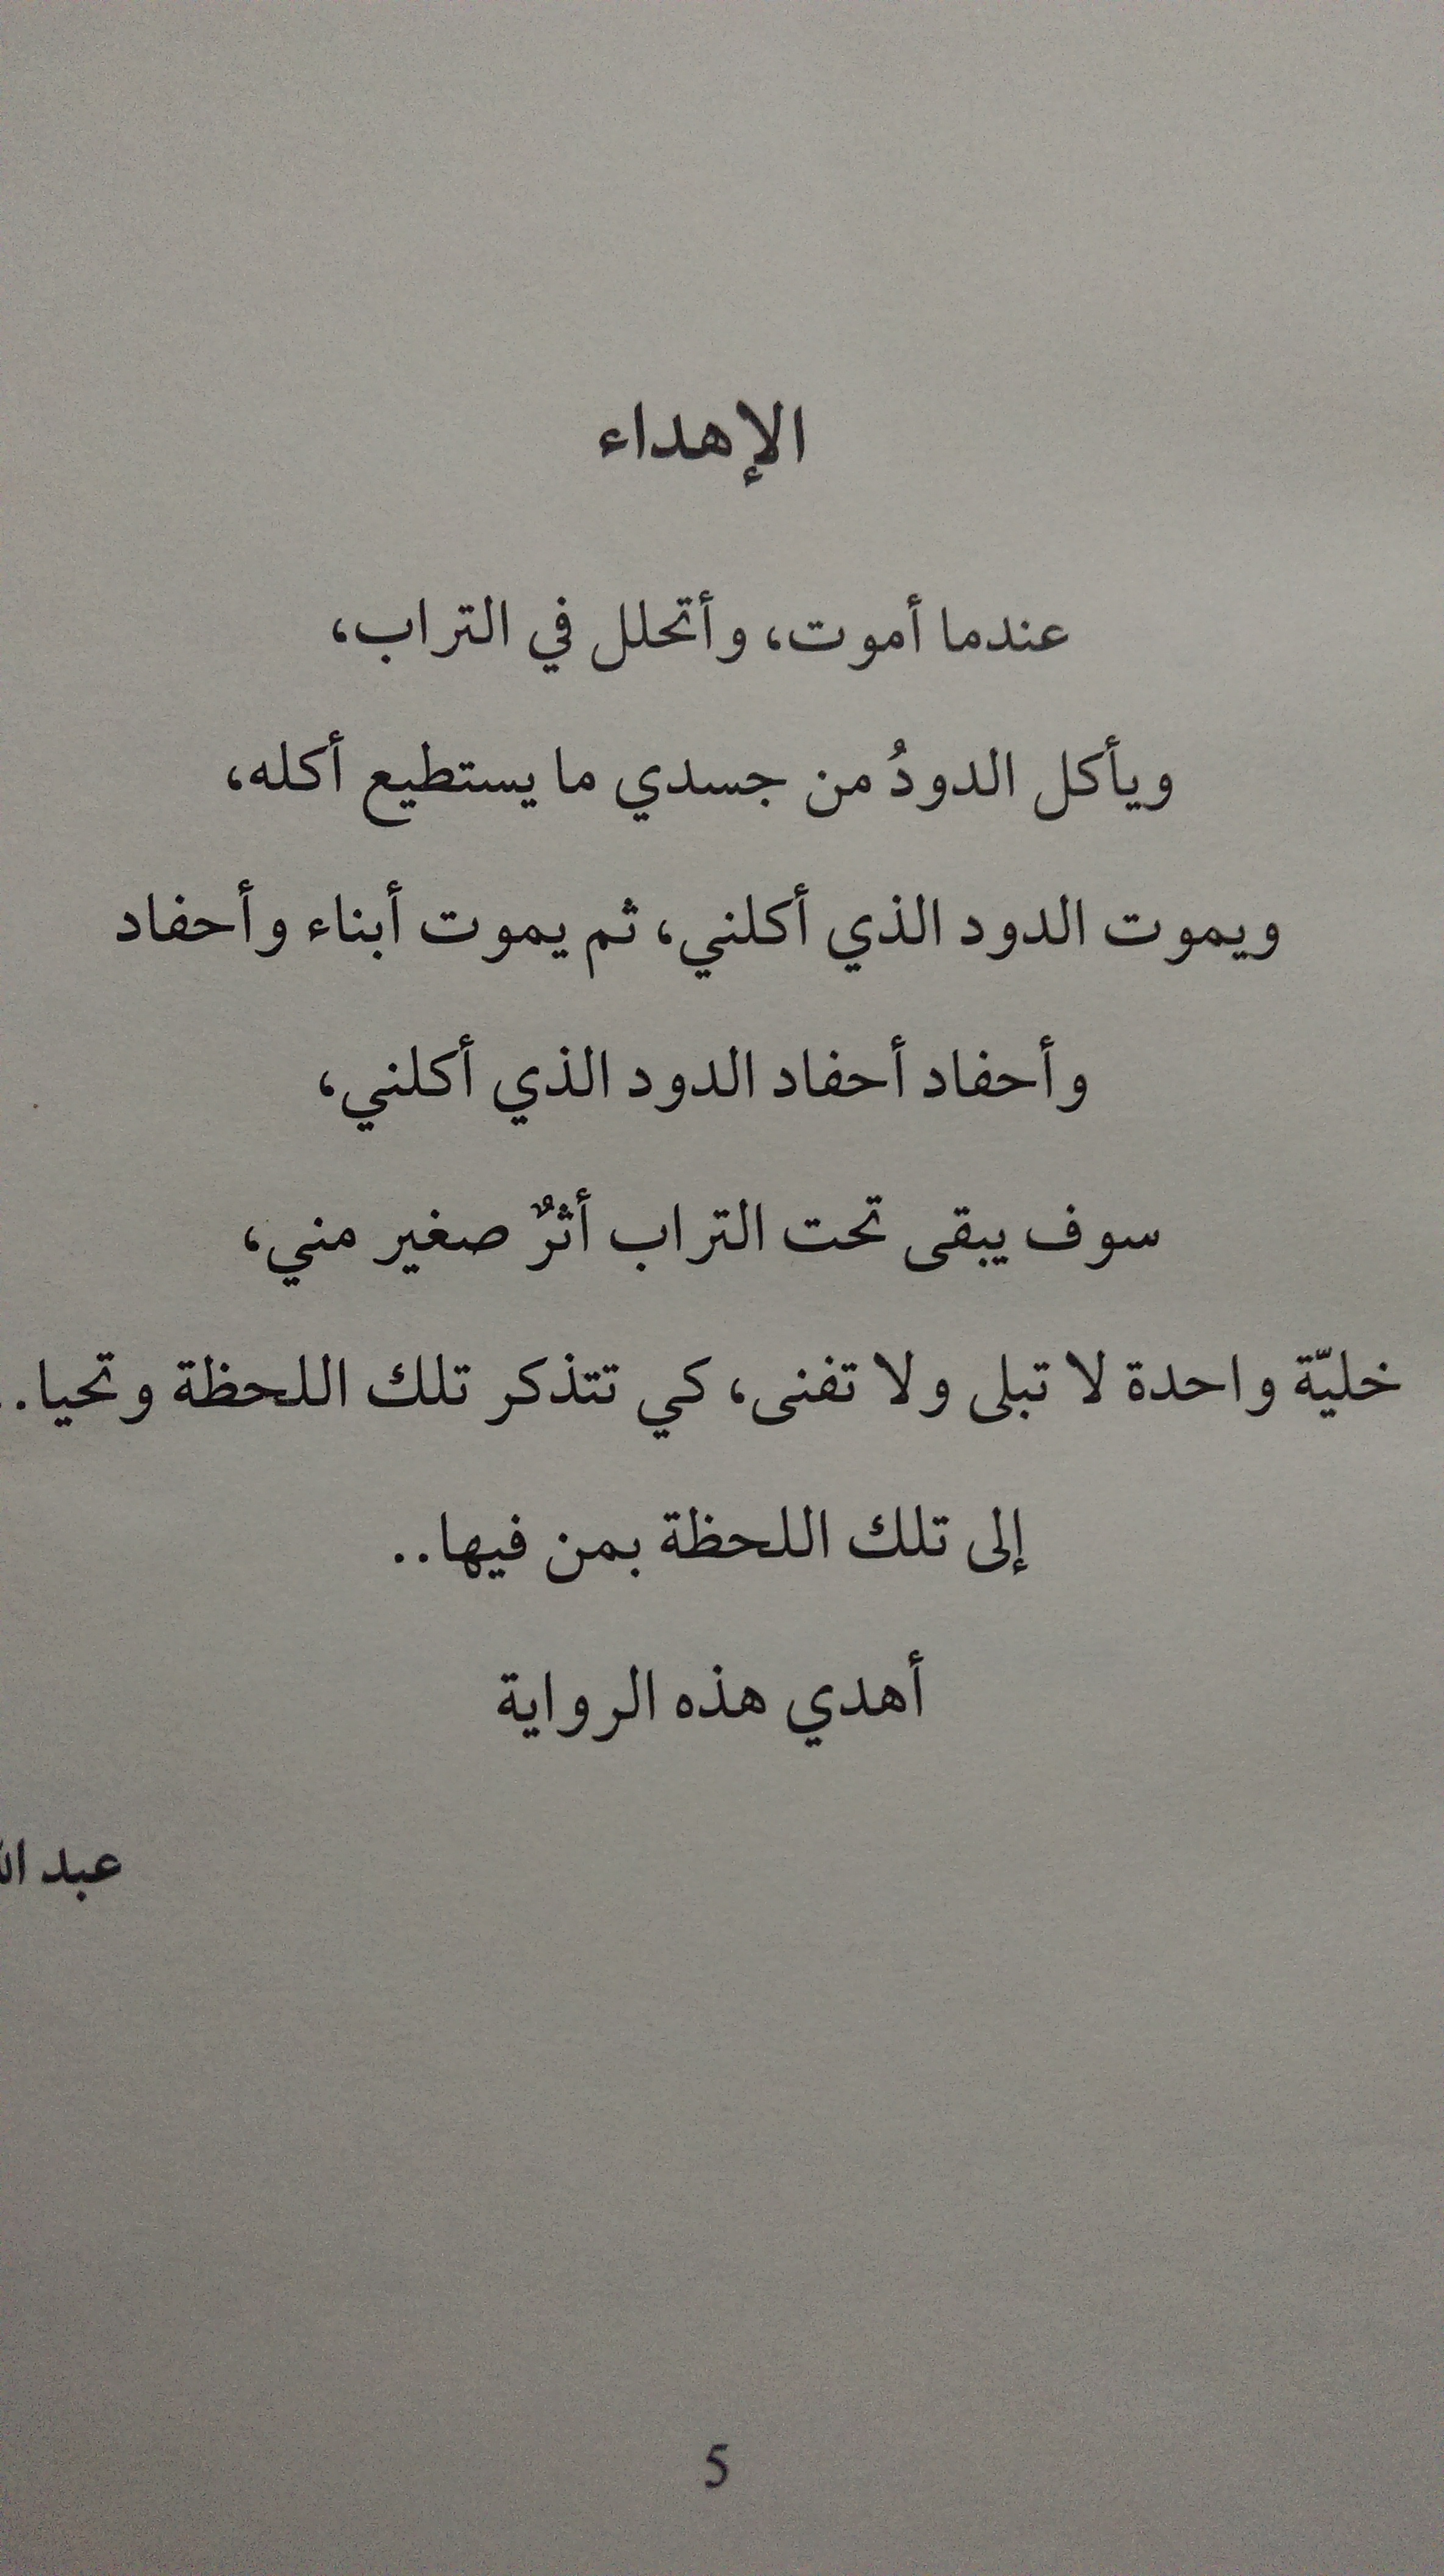 الإهداء
عندما أموت، وأتحلل في التراب،
ويأكل الدودُ من جسدي ما يستطيع أكله،
ويموت الدود الذي أكلني، ثم يموت أبناء وأحفاد
وأحفاد أحفاد الدود الذي أكلني،
سوف يبقى تحت التراب أثرٌ صغير مني،
خليّة واحدة لا تبلى ولا تفنى، كي تتذكر تلك اللحظة وتحيا..
إلى تلك اللحظة بمن فيها..
أهدي هذه الرواية
عبد
5